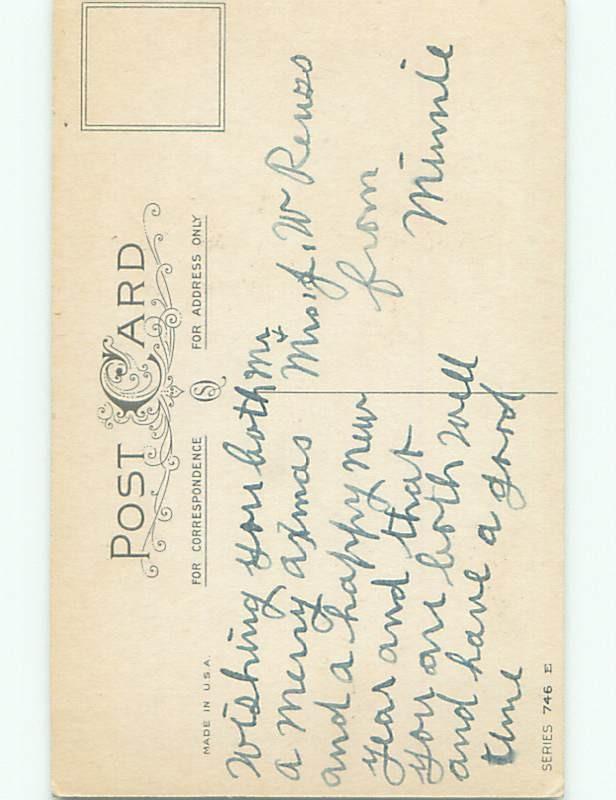 POST CARD
MADE IN U.S.A.
FOR CORRESPONDENCE
FOR ADDRESS ONLY
Wishing you both
a merry axmas
and a happy new
year and that
you are both well
and have a good
time
Mr
&
Mrs J. W
from
Minnie
SERIES 746 E